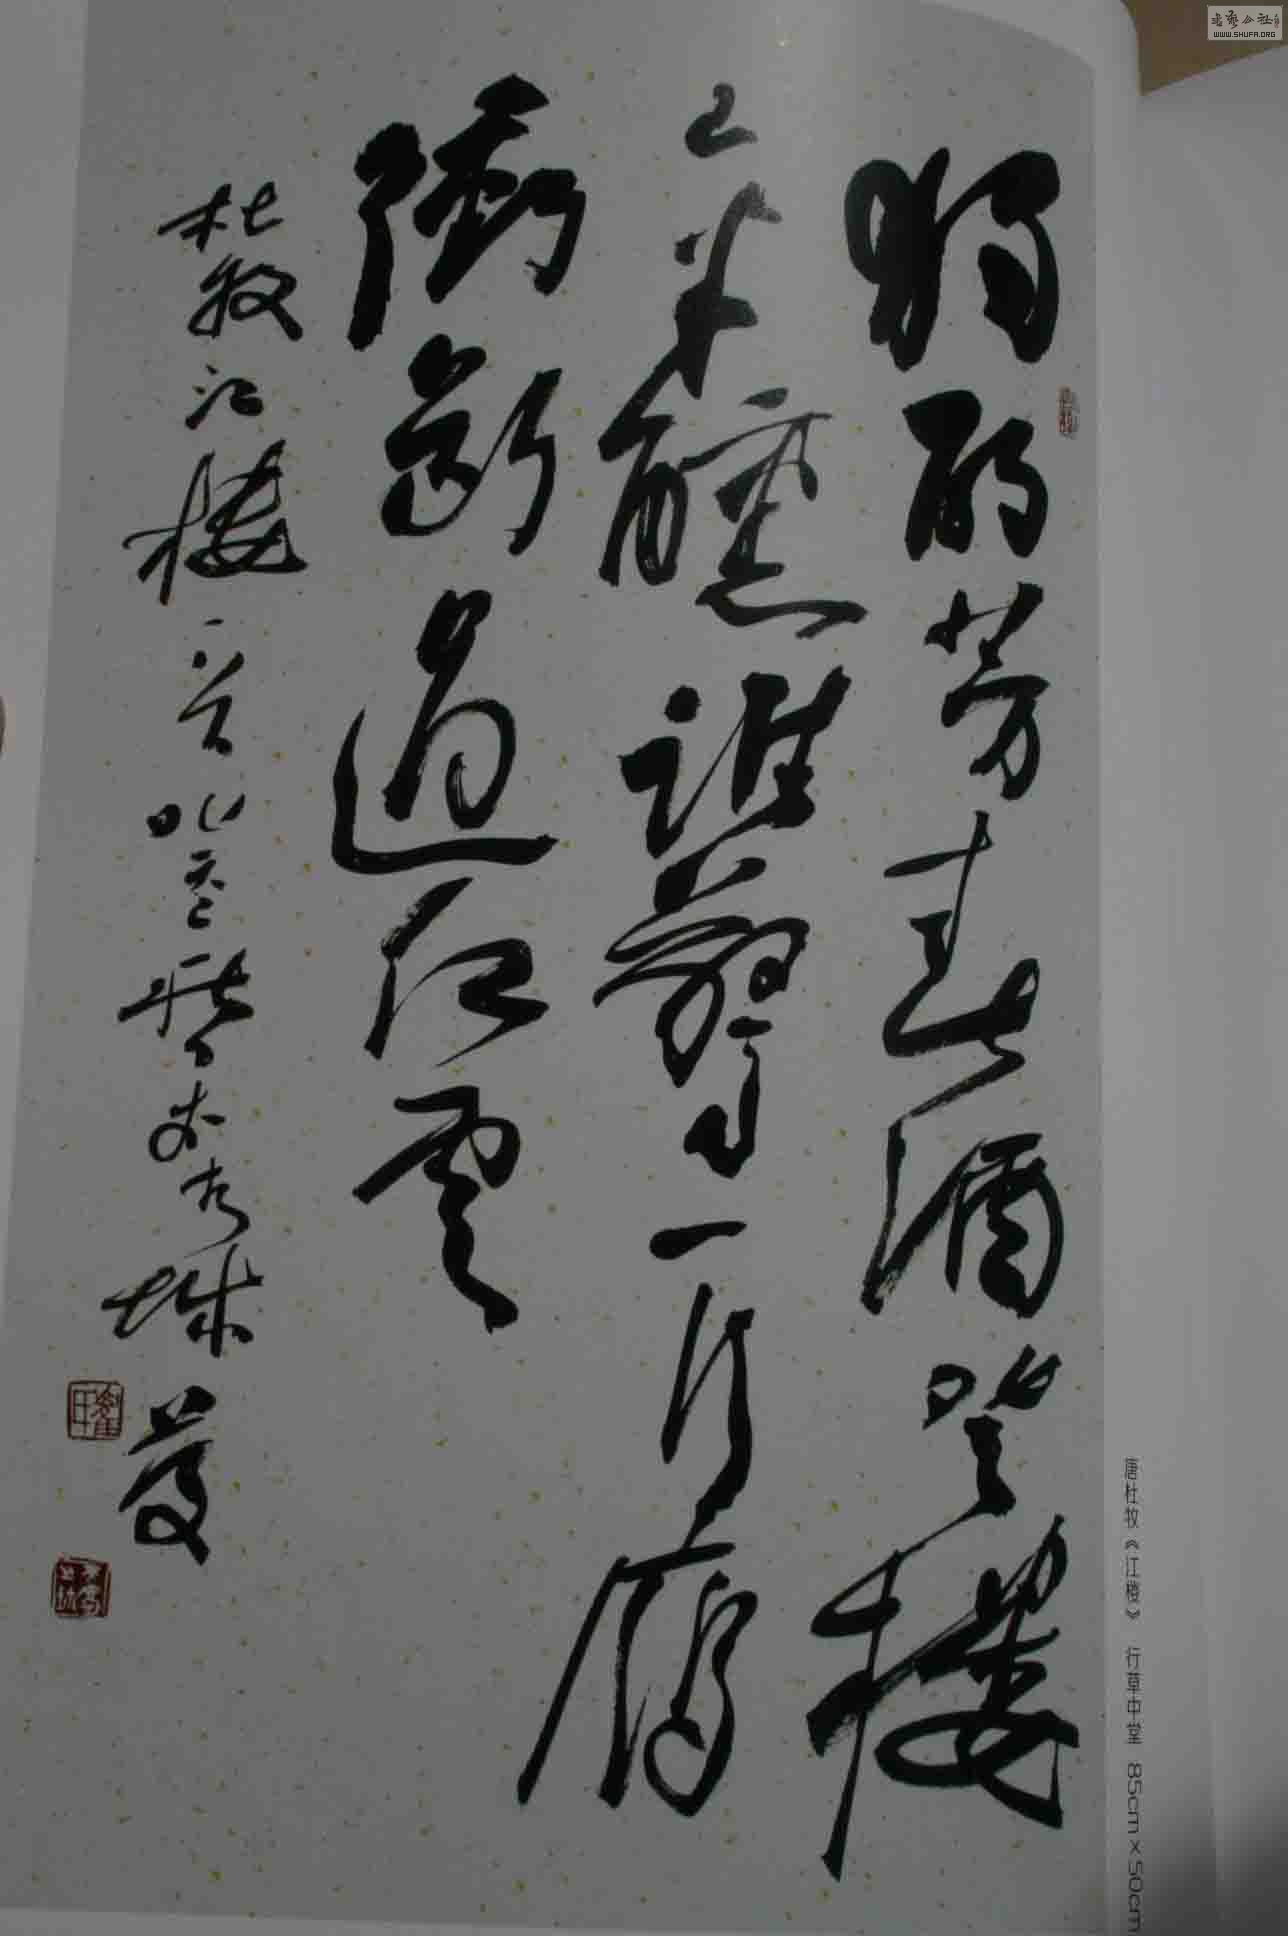 獨酌芳春酒登樓
已半醺誰驚一行雁
衝斷過江雲
杜牧江樓一首
唐杜牧《江楼》 行草中堂 85cm×50cm
书艺公社
WWW.SHUFA.ORG